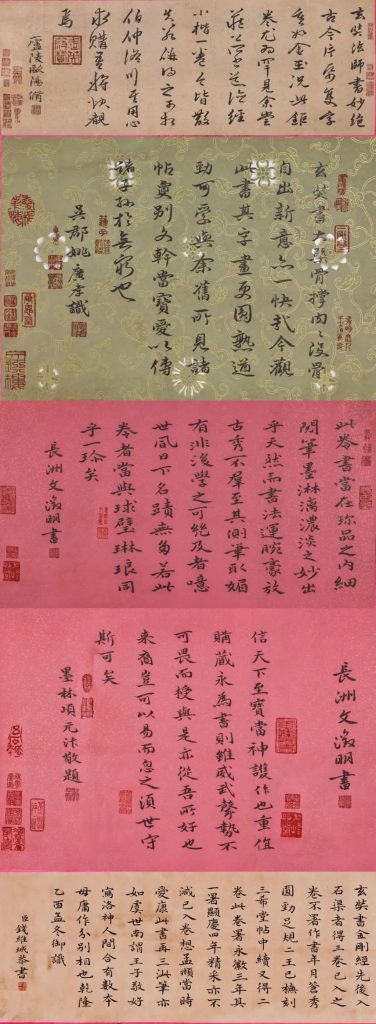 玄奘法師書妙絕
古今片帋隻字
重如金玉況此鉅
卷尤為罕見余嘗
道經
小楷一卷皆
得之可相
伯仲用心
永購善將快觀
焉
廬陵歐陽脩
玄奘書大題骨撐肉々沒骨
自出新意亦一快哉今觀
此書其字畫更圓熟遒
勁可愛與余舊所見諸
帖逈別文幹當寶愛以傳
諸子孫於無窮也
吳郡姚廣孝識
此卷書當在珎品之內細
閱筆墨淋漓濃淡之妙出
乎天然而書法運腕豪放
古秀不羣至其側筆取媚
有非後學之可能及者噫
世風日下名蹟無多若此
卷者當與球璧琳琅同
乎一珎矣
長洲文徵明書
長洲文徵明書
信天下至寶當神護作也重值
購藏永為書則雖威武聲勢不
可畏而授與是亦從吾所好也
來裔豈可以易而忽之須世守
斯可矣
墨林項元汴敬題
玄奘書金剛經先後入
石渠者得三卷已入之
卷不署作書年月蒼秀
圓勁足規二王已橅刻
三希堂帖中續又得二
卷此卷署永徽三年其
一署顯慶四年精采亦不
減已入卷想孟頫當時
愛康山書再三汕筆亦
如虞世南謂王子敬好
寫洛神人間合有數本
毋庸作分別相也乾隆
乙酉孟冬御識
臣錢維城恭書